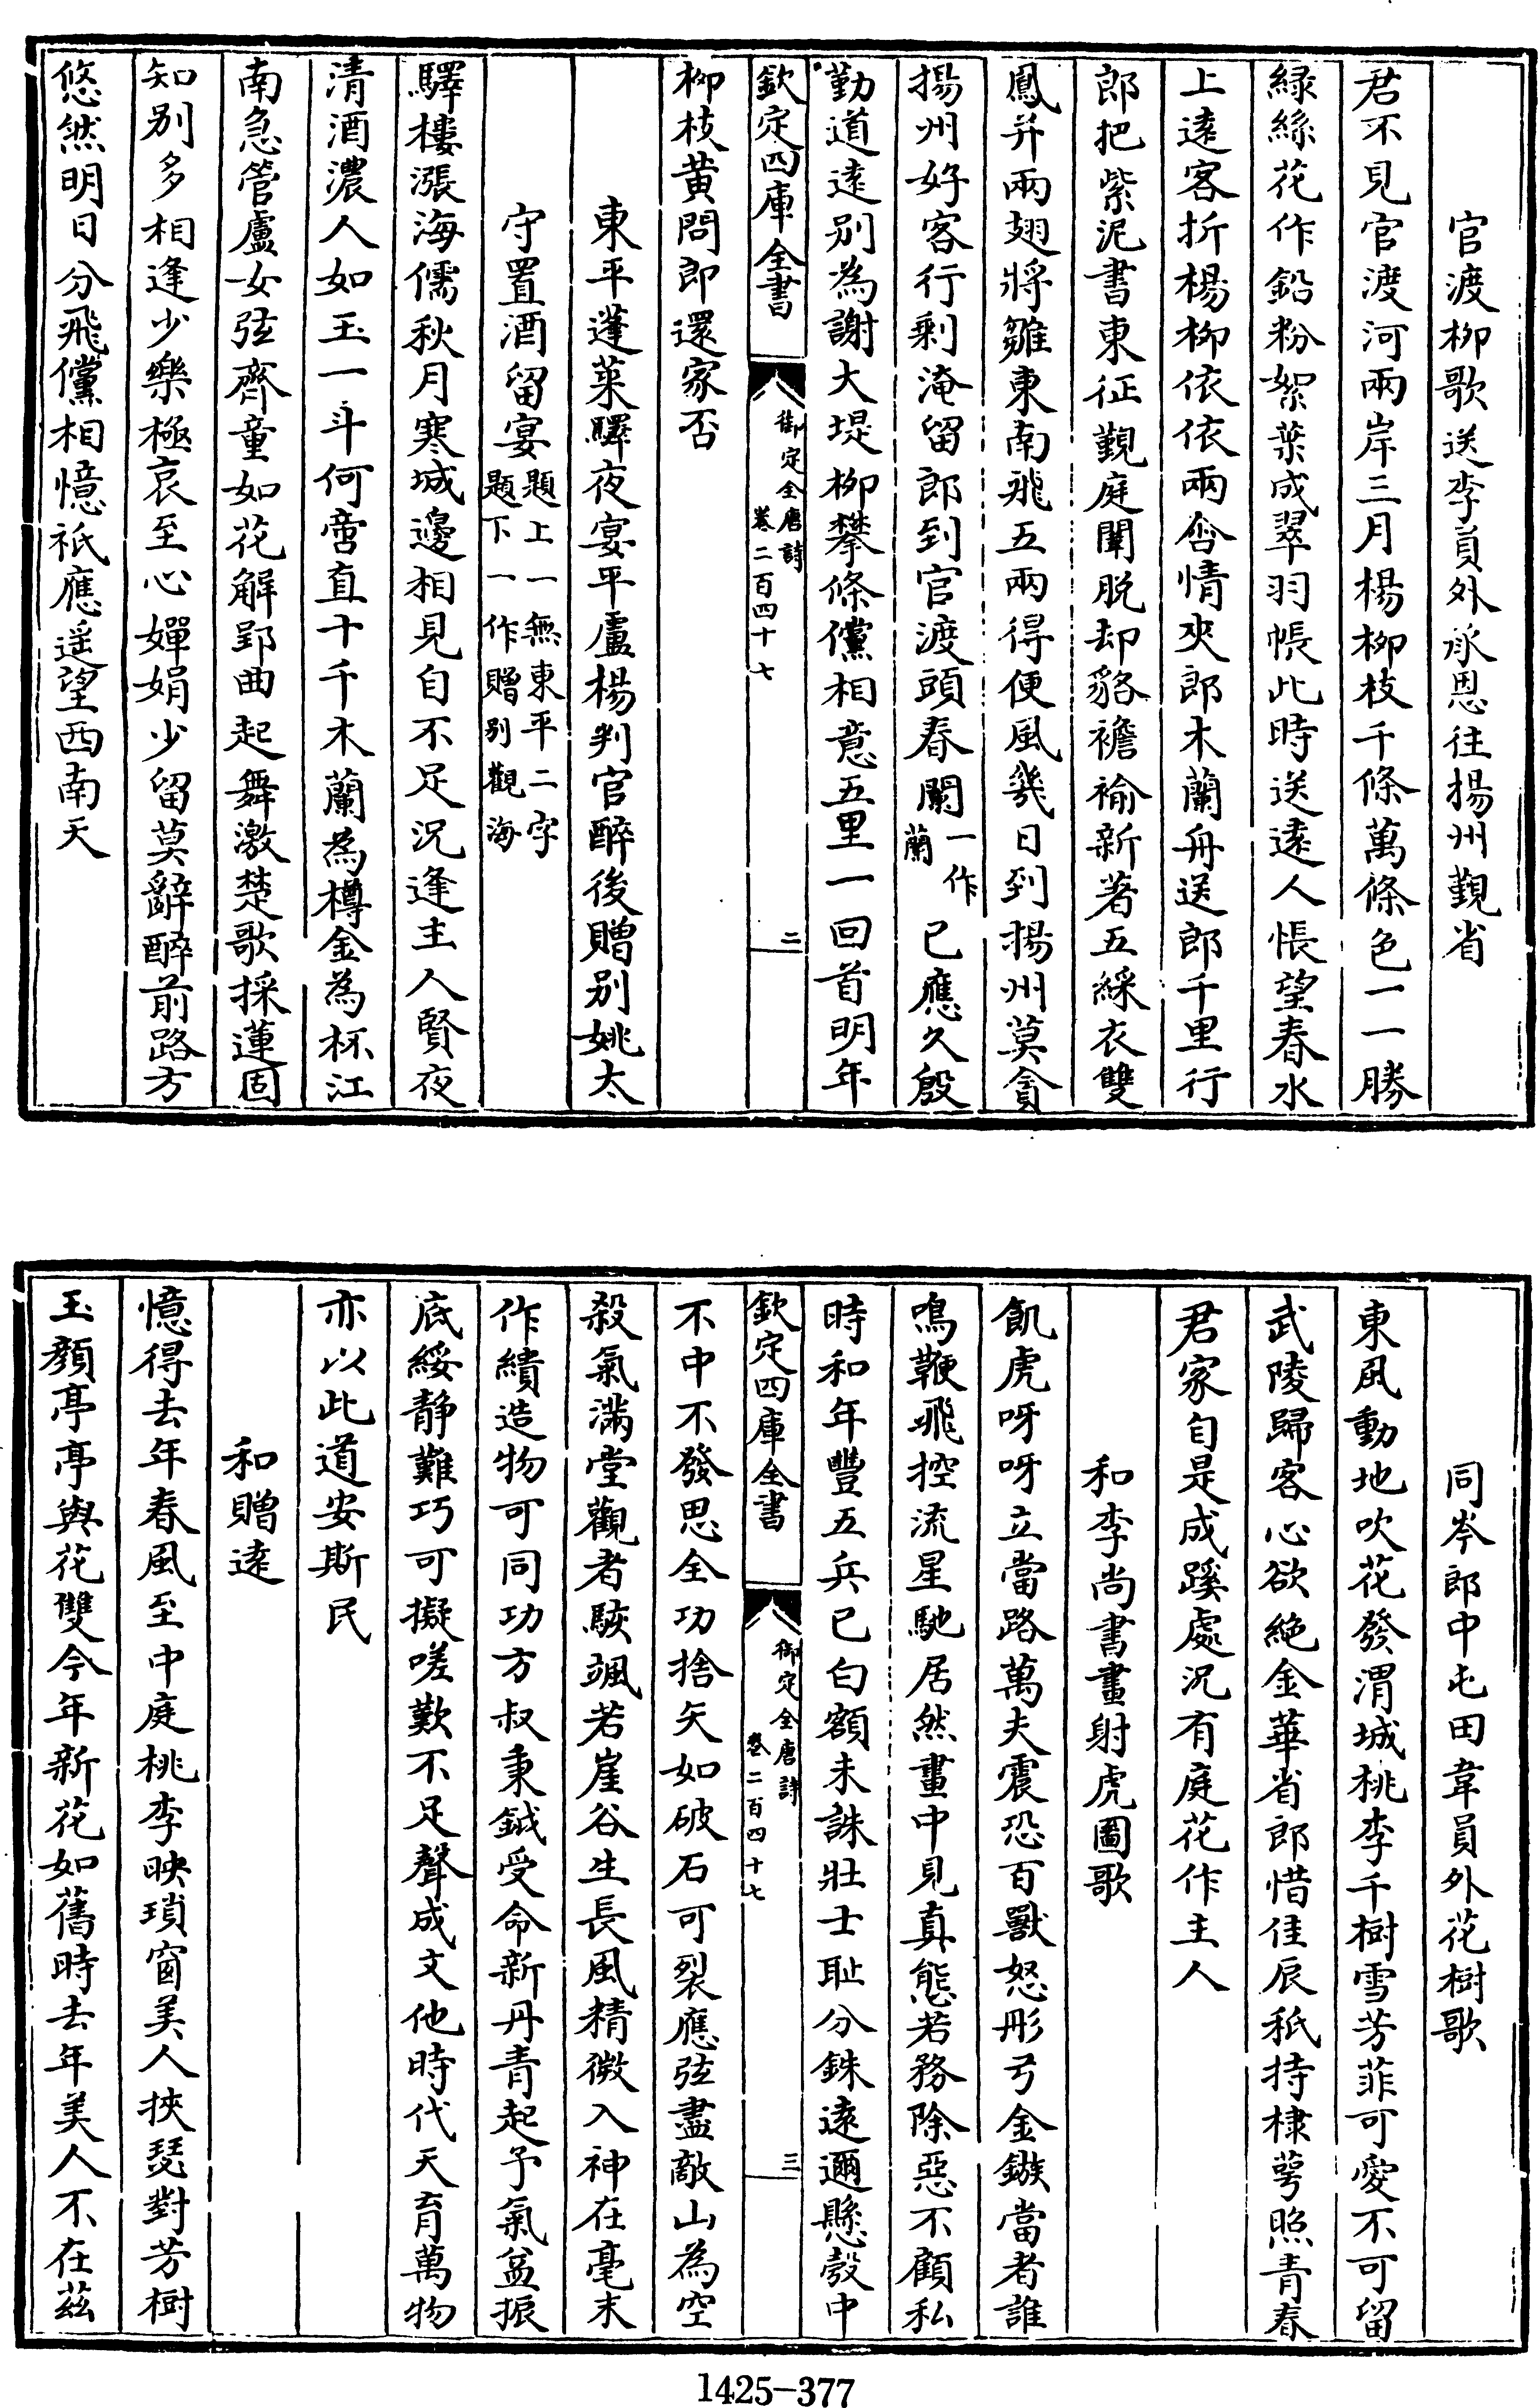 官渡柳歌送李員外承恩往揚州觀省
君不見官渡河兩岸三月楊柳枝千條萬條色一一勝
緑絲花作鉛粉絮葉成翠羽帳此時送遠人悵望春水
上遠客折楊柳依依兩含情夾郎木蘭舟送郎千里行
郎把紫泥書東征覲庭闈脱却貂襜褕新著五綵衣雙
鳳并兩翅將雛東南飛五兩得便風幾日到揚州莫貪
揚州好客行剩淹留郎到官渡頭春闌一作蘭已應久殷
勤道遠别為謝大堤柳攀條儻相意五里一回首明年
欽定四庫全書
御定全唐詩
卷二百四十七
二
柳枝黄問郎還家否
東平蓬萊驛夜宴平盧楊判官醉後贈别姚太
守置酒留宴題上一無東平二字題下一作贈别觀海
驛樓漲海儒秋月寒城邊相見自不足況逢主人賢夜
清酒濃人如玉一斗何啻直十千木蘭為樽金為杯江
南急管盧女弦齊童如花解郢曲起舞激楚歌採蓮固
知别多相逢少樂極哀至心嬋娟少留莫辭醉前路方
悠然明日分飛儻相憶祇應遥望西南天
同岑郎中屯田韋員外花樹歌
東風動地吹花發渭城桃李千樹雪芳菲可愛不可留
武陵歸客心欲絶金華省郎惜佳辰秖持棣萼照青春
君家自是成蹊處況有庭花作主人
和李尚書畫射虎圖歌
飢虎呀呀立當路萬夫震恐百獸怒彤弓金鏃當者誰
鳴鞭飛控流星馳居然畫中見真態若務除惡不顧私
時和年豐五兵已白額未誅壯士耻分銖遠邇懸彀中
欽定四庫全書
御定全唐詩
卷二百四十七
三
不中不發思全功捨矢如破石可裂應弦盡敵山為空
殺氣滿堂觀者駭颯若崖谷生長風精微入神在毫末
作繢造物可同功方叔秉鉞受命新丹青起予氣益振
底綏静難巧可擬嗟歎不足聲成文他時代天育萬物
亦以此道安斯民
和贈遠
憶得去年春風至中庭桃李映瑣窗美人挾瑟對芳樹
玉顏亭亭與花雙今年新花如舊時去年美人不在兹
1425-377